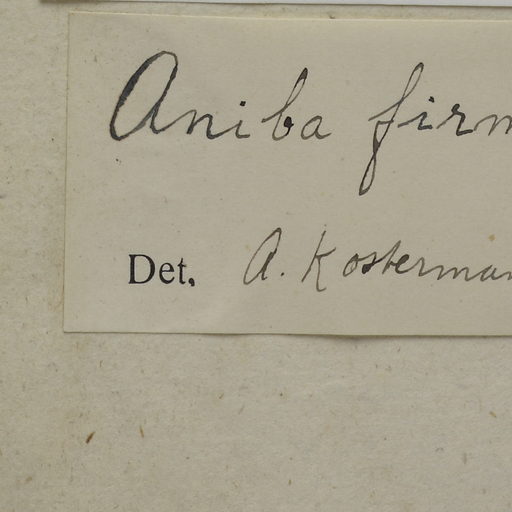 Aniba firm
Det. A. Kosterman